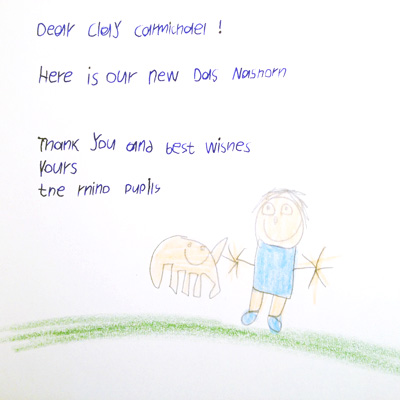 Dear Clay Carmichael !
Here is our new Das Nashorn
Thank you and best wishes
Yours
the rhino pupils